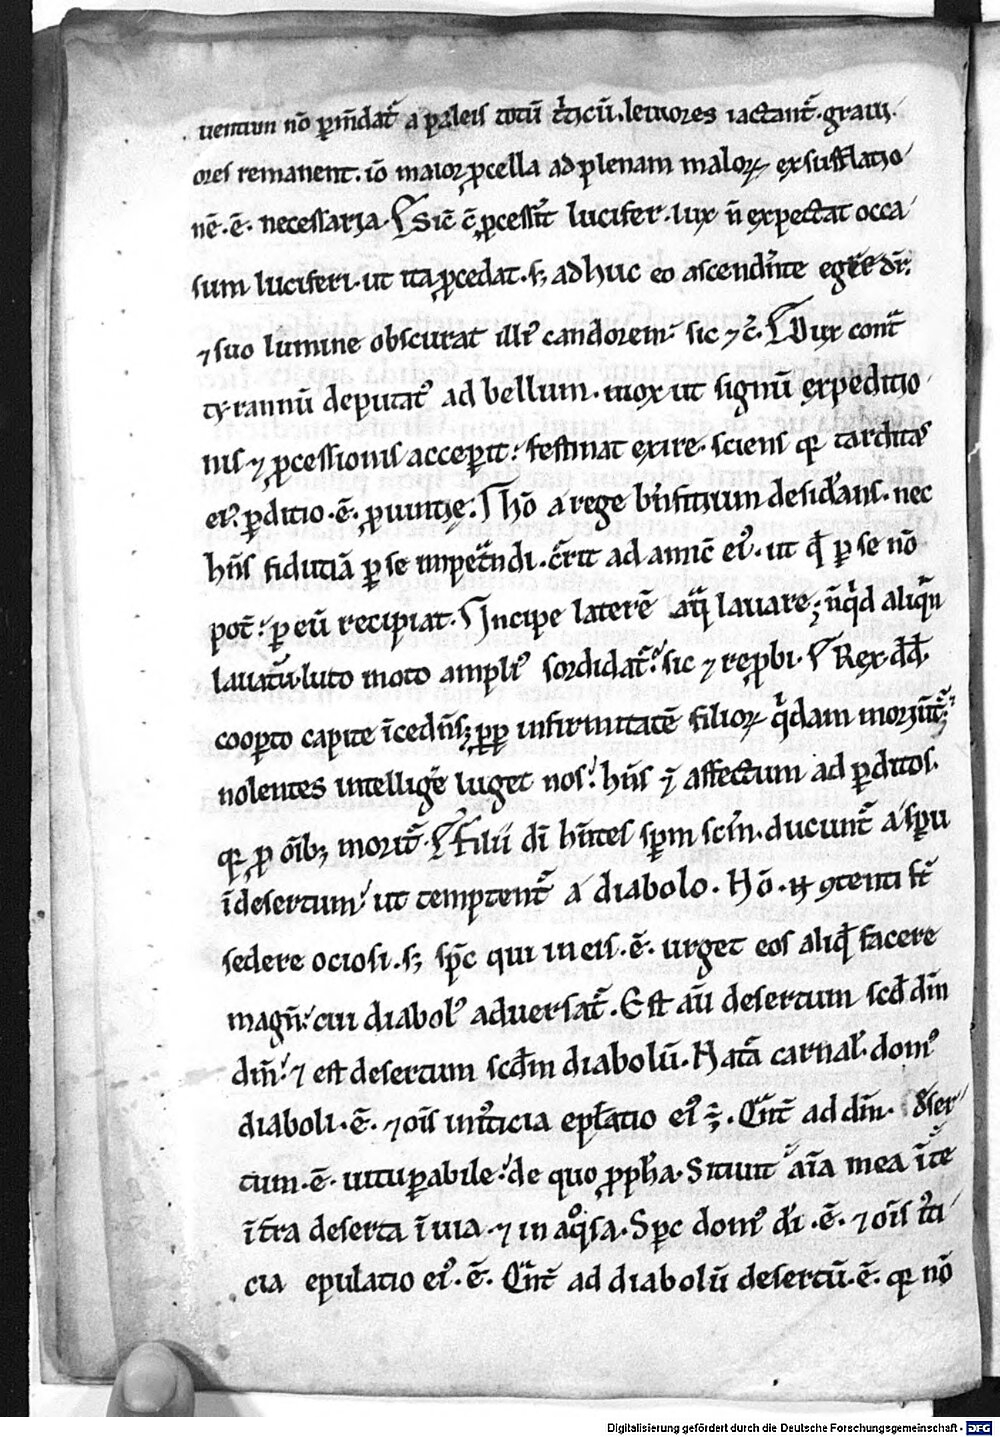 uentium nō ꝑm̄dat᷑ a paleis totū t̾ticū. leuiores iactant᷑. graui-
ores remanent. iō maior ꝓcella ad plenam maloꝝ exsufflatio-
nē .ē. necessaria. Sic̄ c̄ ꝓcessit᷑ lucifer. lux n̄ expectat occa-
sum luciferi. ut ita ꝓcedat. sꝫ adhuc eo ascendn̄te egredr̄.
⁊ suo lumine obscurat illiꝰ candorem. sic ⁊ c̄. Dux cont᷑
tyrannū deputatꝰ ad bellum. mox ut signū expeditio-
nis ⁊ ꝓcessionis acceꝑit. festinat exire. sciens qꝛ tarditas
eiꝰ ꝑditio .ē. ꝓuintie. Hō a rege bn̄ficium desid̾ans. nec
hn̄s fiduciā ꝑ se impet᷑ndi. c̾rit ad amic̄ eiꝰ. ut qd̄ ꝑ se nō
pot̄. ꝑ eū recipiat. Incipe laterē aq̄ lauare. n̄qͥd aliqn̄
lauatū. luto moto ampliꝰ sordidat᷑. sic ⁊ rep̄bi. Rex dd̄.
cooꝑto capite īcedn̄s. ꝓꝑ infirmitatē filioꝝ qͥdam moriūt᷑.
nolentes intellige᷑ luget nos. hn̄s ī affectum ad ꝑditos.
qꝛ ꝓ oīb; morit᷑. Filii dī hn̄tes spm̄ scm̄. ducunt᷑ a spu
ī desertum. ut temptent᷑ a diabolo. Hō. n̄ ꝯtenti st̄
sedere ociosi. sꝫ spc̄ qui in eis .ē. urget eos aliqd̄ facere
magn̄. cui diabolꝰ aduersat᷑. Est aū desertum scd̄m
dm̄. ⁊ est desertum scd̄m diabolū. Natā carnal̄. domꝰ
diaboli .ē. ⁊ oīs iniꝰticia epl̄atio eiꝰ ē. Qn̄t᷑ ad dm̄. deser-
tum .ē. uituꝑabile. de quo ꝓph̄a. Sitiuit aīa mea ī te
ī t̄ra deserta ī uia. ⁊ in aqͦsa. Spc̄ domꝰ dī .ē. ⁊ oīs iꝰti-
cia epulatio eiꝰ .ē. Qn̄t᷑ ad diabolū desertū .ē. qꝛ nō
Digitalisierung gefördert durch die Deutsche Forschungsgemeinschaft - DFG